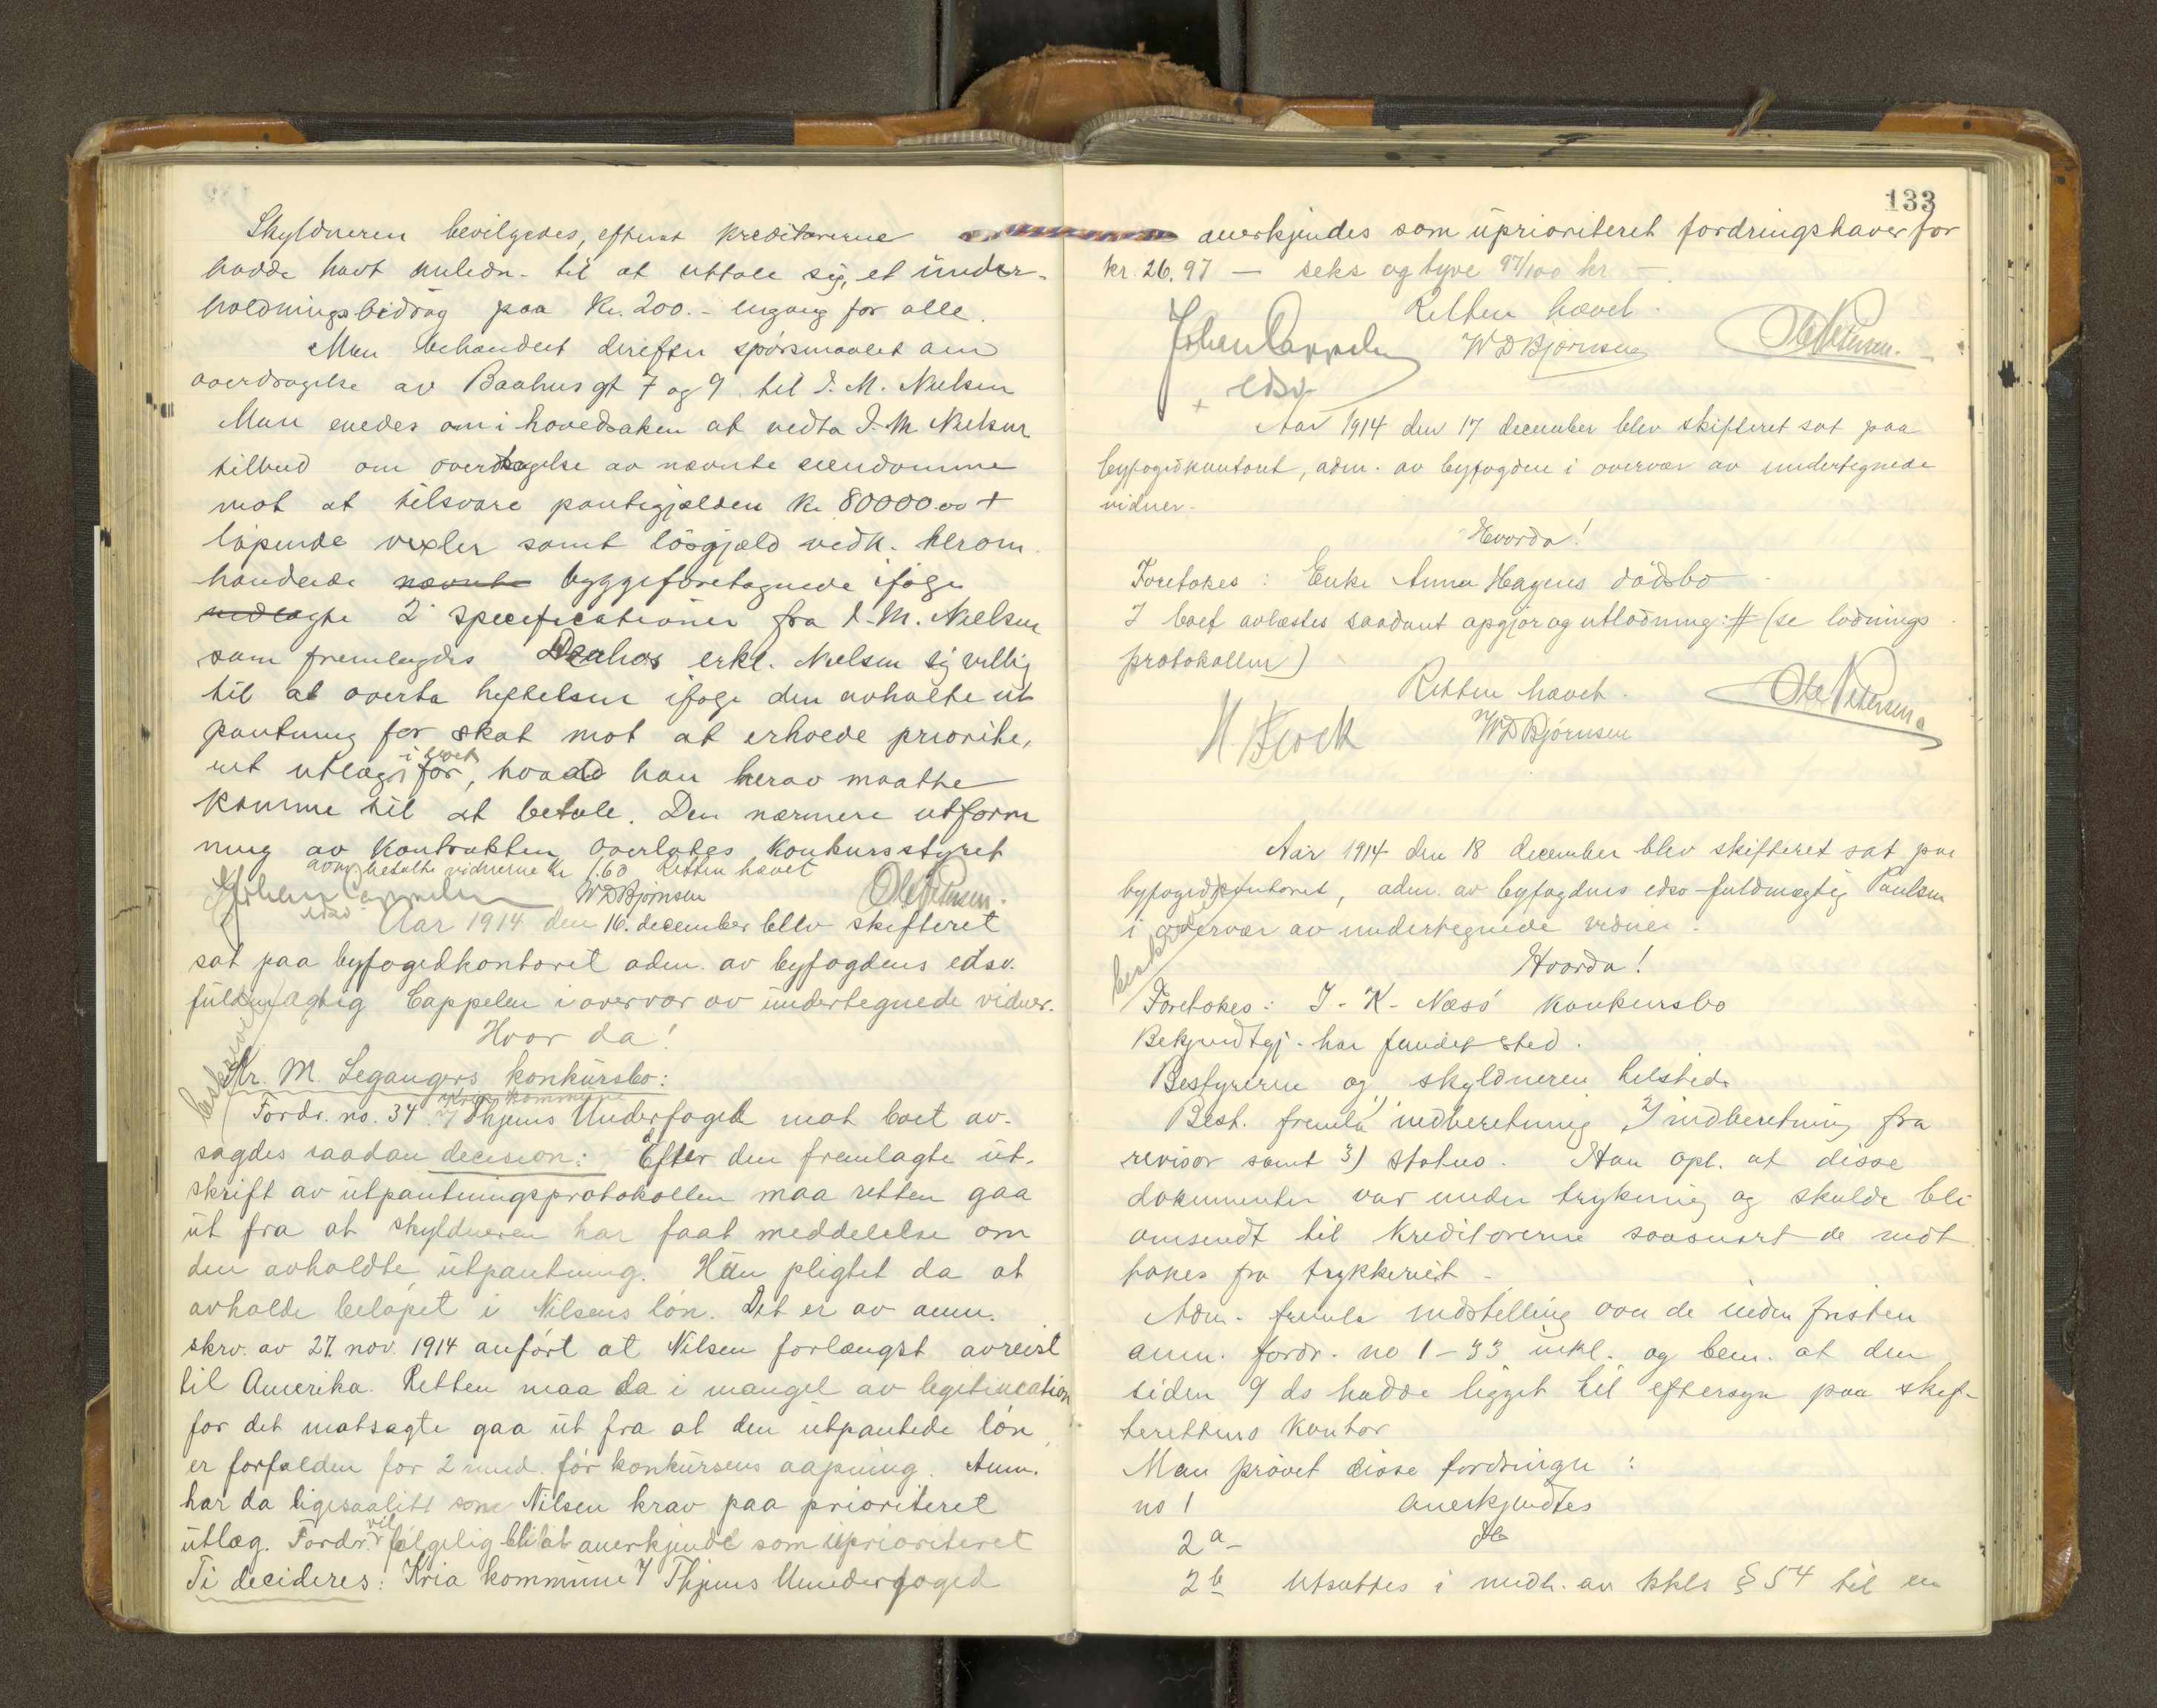 Skyldneren bevilgedes, efterat kreditorerne
hadde havt anledn. til at uttale sig, et under-
holdningsbidrag paa kr. 200.- engang for alle.
Man behandlet derefter spörsmaalet om
overdragelse av Baahus gt 7 og 9 til I. M. Nielsen
Man enedes om i hovedsaken at vedta I. M. Nielsens
tilbud om overdragelse av nævnte eiendomme
mot at tilsvare pantegjælden kr 80000.00 +
löpende vexler samt lösgjæld vedk. herom
handlede nævnte byggeforetagende ifölge
nedlagte 2 specificationer fra I. M. Nielsen
som fremlagdes. erkl. Nielsen sig villig
til at overta heftelsen ifölge den avholte ut
pantning for skat mot at erholde priorite,
ret utlæg i boet for, hvad han herav maatte
komme til at betale. Den nærmere utform
ning av kontrakten overlates konkursstyret
adm betalte vidnerne kr 1.60 Retten hævet
Johan Cappelen W D Bjørnsen Ole Petersen.
edsv
Aar 1914 den 16. december blev skifteret
sat paa byfogedkontoret adm. av byfogdens edsv.
fuldmægtig Cappelen i overvær av undertegnede vidner.
Hvor da!
beskrevet
Kr. M. Legangers konkursbo:
Kria kommune
Fordr. no. 34. v/ Thjems Underfoged mot boet av-
sagdes saadan decision: Efter den fremlagte ut-
skrift av utpantningsprotokollen maa retten gaa
ut fra at skyldneren har faat meddelelse om
den avholdte utpantning. Han pligtet da at
avholde belöpet i Nilsens lön. Det er av anm.
skrv. av 27. nov. 1914 anfört at Nilsen forlængst avreist
til Amerika. Retten maa da i mangel av legitimation
for det motsagte gaa ut fra at den utpantede lön
er forfalden for 2 mnd. för konkursens aapning. Anm.
har da ligesaalitt som Nilsen krav paa prioriteret
utlæg. Fordr. vil fölgelig bli at anerkjende som uprioriteret
Ti decideres: Kria kommune v/ Thjems Underfoged
133
anerkjendes som uprioriteret fordringshaver for
kr. 26.97 — seks og tyve 97/100 kr —
Retten hævet.
Johan Cappelen W D Bjørnsen Ole Petersen.
edsv
Aar 1914 den 17 december blev skifteret sat paa
byfogedkontoret, adm. av byfogden i overvær av undertegnede
vidner.
Hvorda!
Foretokes: Enke Anna Hagens dödsbo
I boet avlæstes saadant opgjör og utlodning: # (se lodnings
protokollen)
Retten hævet.
W D Bjørnsen Ole Petersen
Aar 1914 den 18 december blev skifteret sat paa
byfogedkontoret, adm. av byfogdens edsv. fuldmægtig Paulsen
i overvær av undertegnede vidner.
beskrevet
Hvorda!
Foretokes: J. K. Næss' konkursbo
Bekjendtgj. har fundet sted.
Bestyrerne og skyldneren tilstede
Best. fremla 1) indberetning 2) indberetning fra
revisor samt 3) status. Han opl. at disse
dokumenter var under trykning og skulde bli
omsendt til kreditorerne saasnart de mot
tokes fra trykkeriet.
Adm. fremla indstilling over de inden fristen
anm. fordr. no 1-33 inkl. og bem. at den
siden 9 ds hadde ligget til eftersyn paa skif-
terettens kontor
Man prövet disse fordringer:
no 1 anerkjendtes
2a - do
2b - utsattes i medh. av kkls § 54 til en